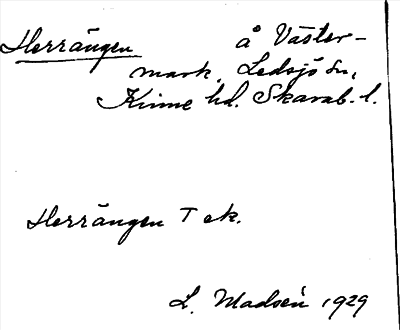 Herrängen å Väster-
mark, Ledsjö sn,
Kinne hd. Skarab. l.
Herrängen T ek.
L. Madsén 1929